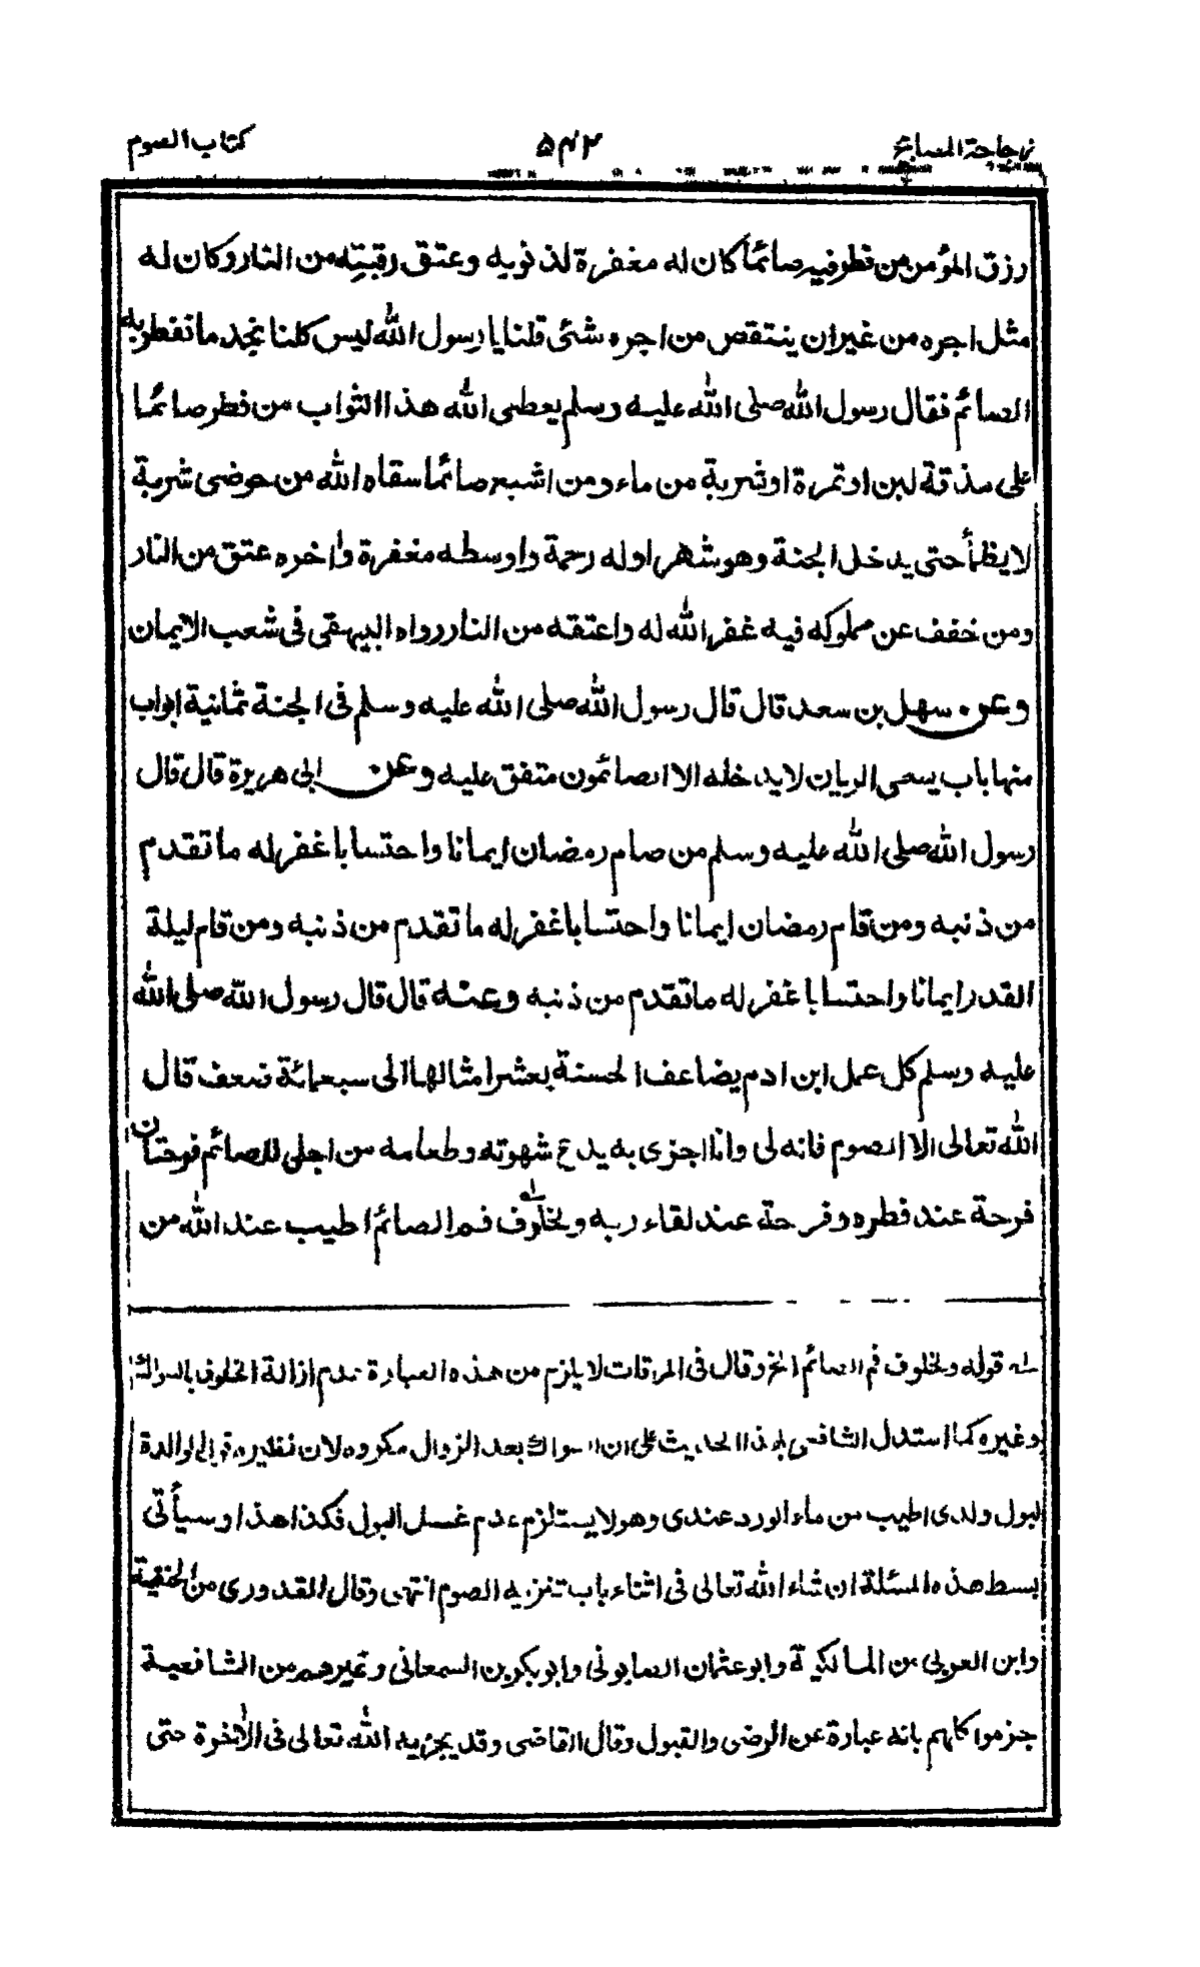 زجاجة المصابيح ۵۴۲ كتاب الصوم
رزق المؤمن من فطر فيه صائما كان له مغفرة لذنوبه وعتق رقبتِه من النار وكان له
مثل اجره من غير ان ينتقص من اجره شئ قلنا يا رسول الله ليس كلنا نجد ما نفطر به
الصائم فقال رسول الله صلى الله عليه وسلم يعطى الله هذا الثواب من فطر صائما
على مذقة لبن او تمرة او شربة من ماء ومن اشبع صائما سقاه الله من حوضى شربة
لا يظمأ حتى يدخل الجنة وهو شهر اوله رحمة واوسطه مغفرة وأخره عتق من النار
ومن خفف عن مملوكه فيه غفر الله له واعتقه من النار رواه البيهقى فى شعب الايمان
وعن سهل بن سعد قال قال رسول الله صلى الله عليه وسلم فى الجنة ثمانية ابواب
منها باب يسمى الريان لا يدخله الا الصائمون متفق عليه وعن ابى هريرة قال قال
رسول الله صلى الله عليه وسلم من صام رمضان ايمانا واحتسابا غفر له ما تقدم
من ذنبه ومن قام رمضان ايمانا واحتسابا غفر له ما تقدم من ذنبه ومن قام ليلة
القدر ايمانا واحتسابا غفر له ما تقدم من ذنبه وعنه قال قال رسول الله صلى الله
عليه وسلم كل عمل ابن ادم يضاعف الحسنة بعشر امثالها الى سبعمائة ضعف قال
الله تعالى الا الصوم فانه لى وانا اجزى به يدع شهوته وطعامه من اجلى للصائم فرحتان
فرحة عند فطره وفرحة عند لقاء ربه ولخلوف فم الصائم اطيب عند الله من
له قوله ولخلوف فم الصائم الخ وقال فى المرقات لا يلزم من هذه العبارة عدم ازالة الخلوف بالسواك
وغيره كما استدل الشافعى بهذا الحديث على ان السواك بعد الزوال مكروه لان نظيره قول الوالدة
لبول ولدى اطيب من ماء الورد عندى وهو لا يستلزم عدم غسل البول فكذا هذا وسيأتى
بسط هذه المسئلة ان شاء الله تعالى فى اثناء باب تنزيه الصوم انتهى وقال القدورى من الحنفية
وابن العربى من المالكية وابو عثمان الصابونى وابو بكر بن السمعانى وغيرهم من الشافعية
جزموا كلهم بانه عبارة عن الرضى والقبول وقال القاضى وقد يجزيه الله تعالى فى الأخرة حتى